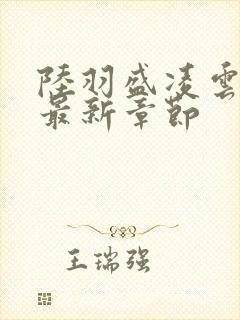 陸羽盛凌雲
最新章節
王瑞强